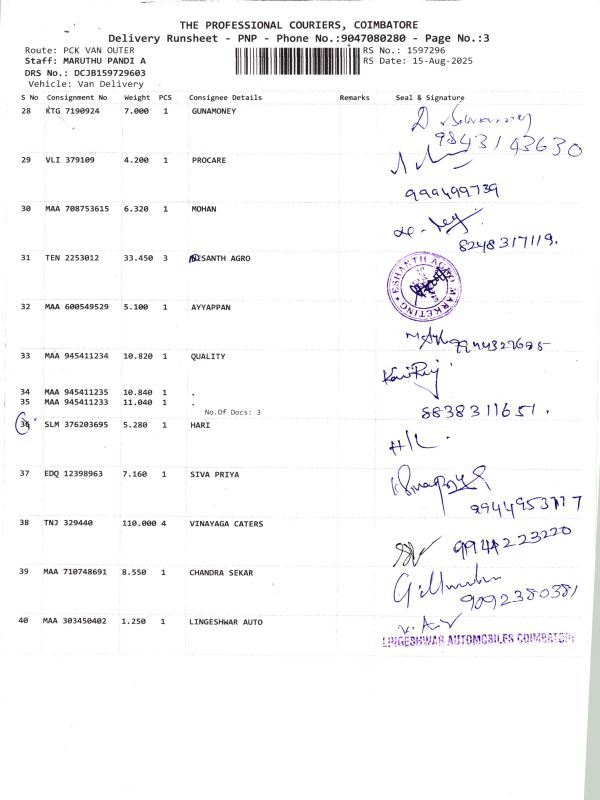 THE PROFESSIONAL COURIERS, COIMBATORE
Delivery Runsheet - PNP - Phone No.:9047080280 - Page No.:3
Route: PCK VAN OUTER RS No.: 1597296
Staff: MARUTHU PANDI A RS Date: 15-Aug-2025
DRS No.: DCJB159729603
Vehicle: Van Delivery
S No Consignment No Weight PCS Consignee Details Remarks Seal & Signature
28 KTG 7190924 7.000 1 GUNAMONEY
9843143630
29 VLI 379109 4.200 1 PROCARE
999499739
30 MAA 708753615 6.320 1 MOHAN
8248317119.
31 TEN 2253012 33.450 3 ESANTH AGRO
ESHANTH AGRO MARKETING
32 MAA 600549529 5.100 1 AYYAPPAN
9944327695
33 MAA 945411234 10.820 1 QUALITY
34 MAA 945411235 10.840 1 .
35 MAA 945411233 11.040 1 .
No.Of Docs: 3
8838311651.
36 SLM 376203695 5.280 1 HARI
H/L.
37 EDQ 12398963 7.160 1 SIVA PRIYA
9944953777
38 TNJ 329440 110.000 4 VINAYAGA CATERS
9944223220
39 MAA 710748691 8.550 1 CHANDRA SEKAR
9092380381
40 MAA 303450402 1.250 1 LINGESHWAR AUTO
LINGESHWAR AUTOMOBILES COIMBATORE